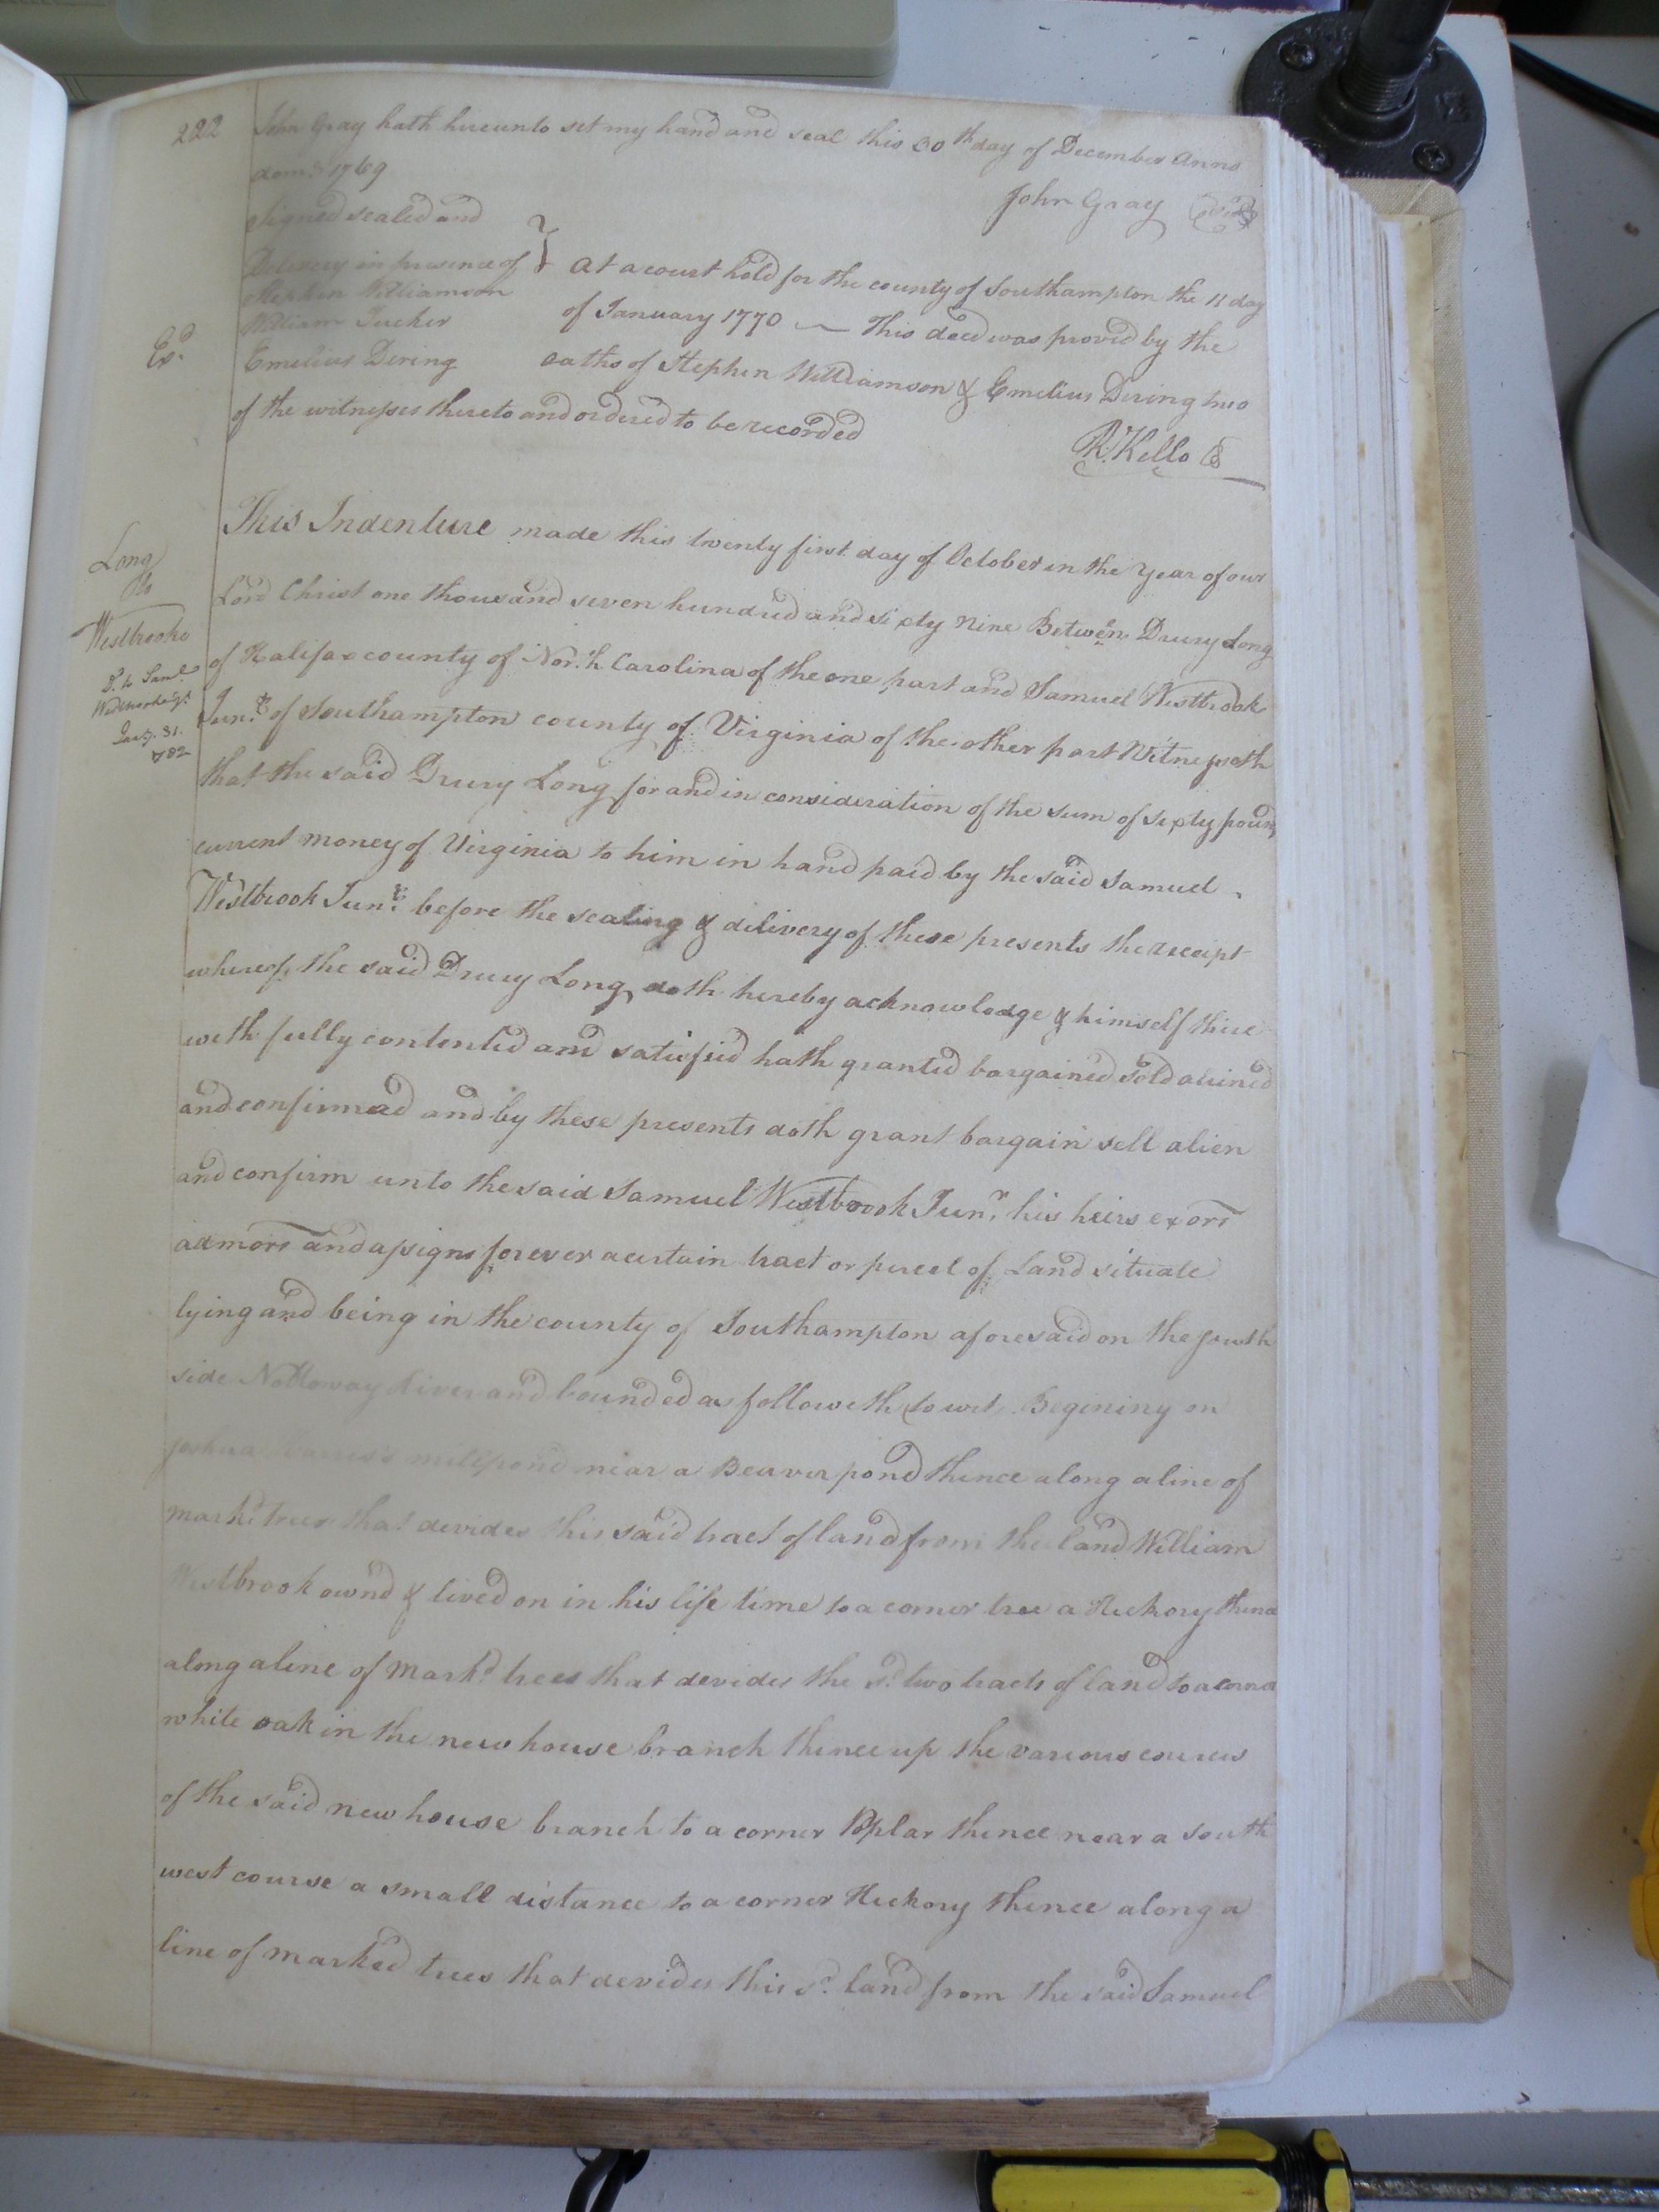 222
John Gray hath hereunto set my hand and seal this 30th day of December Anno
dom: 1769
John Gray
Signed sealed and
Delivery in presence of
Stephen Williamson
William Tucker
Emelius Dering
Exd.
At a court held for the county of Southampton the 11 day
of January 1770 — This deed was proved by the
oaths of Stephen Williamson & Emelius Dering two
of the witnesses thereto and ordered to be recorded
R. Kello
Long
to
Westbrooke
Dd. to Saml.
Jany. 31.
1782
This Indenture made this twenty first day of October in the Year of our
Lord Christ one thousand seven hundred and sixty Nine Between Drury Long
of Halifax county of North Carolina of the one part and Samuel Westbrook
Junr. of Southampton county of Virginia of the other part Witnesseth
that the said Drury Long for and in consideration of the sum of sixty poun
current money of Virginia to him in hand paid by the said Samuel
Westbrook Junr. before the sealing & delivery of these presents the receipt
whereof the said Drury Long doth hereby acknowledge & himself there
with fully contented and satisfied hath granted bargained sold aliened
and confirmed and by these presents doth grant bargain sell alien
and confirm unto the said Samuel Westbrook Junr. his heirs exors
admors and assigns forever a certain tract or parcel of Land situate
lying and being in the county of Southampton aforesaid on the south
side Nottoway River and bounded as followeth (to wit, Begining on
Joshua Harris's millpond near a Beaver pond thence along a line of
markd. trees that devides this said tract of land from the land William
Westbrook ownd & lived on in his life time to a corner tree a Hickory thence
along a line of Markd. trees that devides the sd. two tracts of land to a corner
white oak in the new house branch thence up the various courses
of the said new house branch to a corner Poplar thence near a south
west course a small distance to a corner Hickory thence along a
line of marked trees that devides this sd. land from the said Samuel